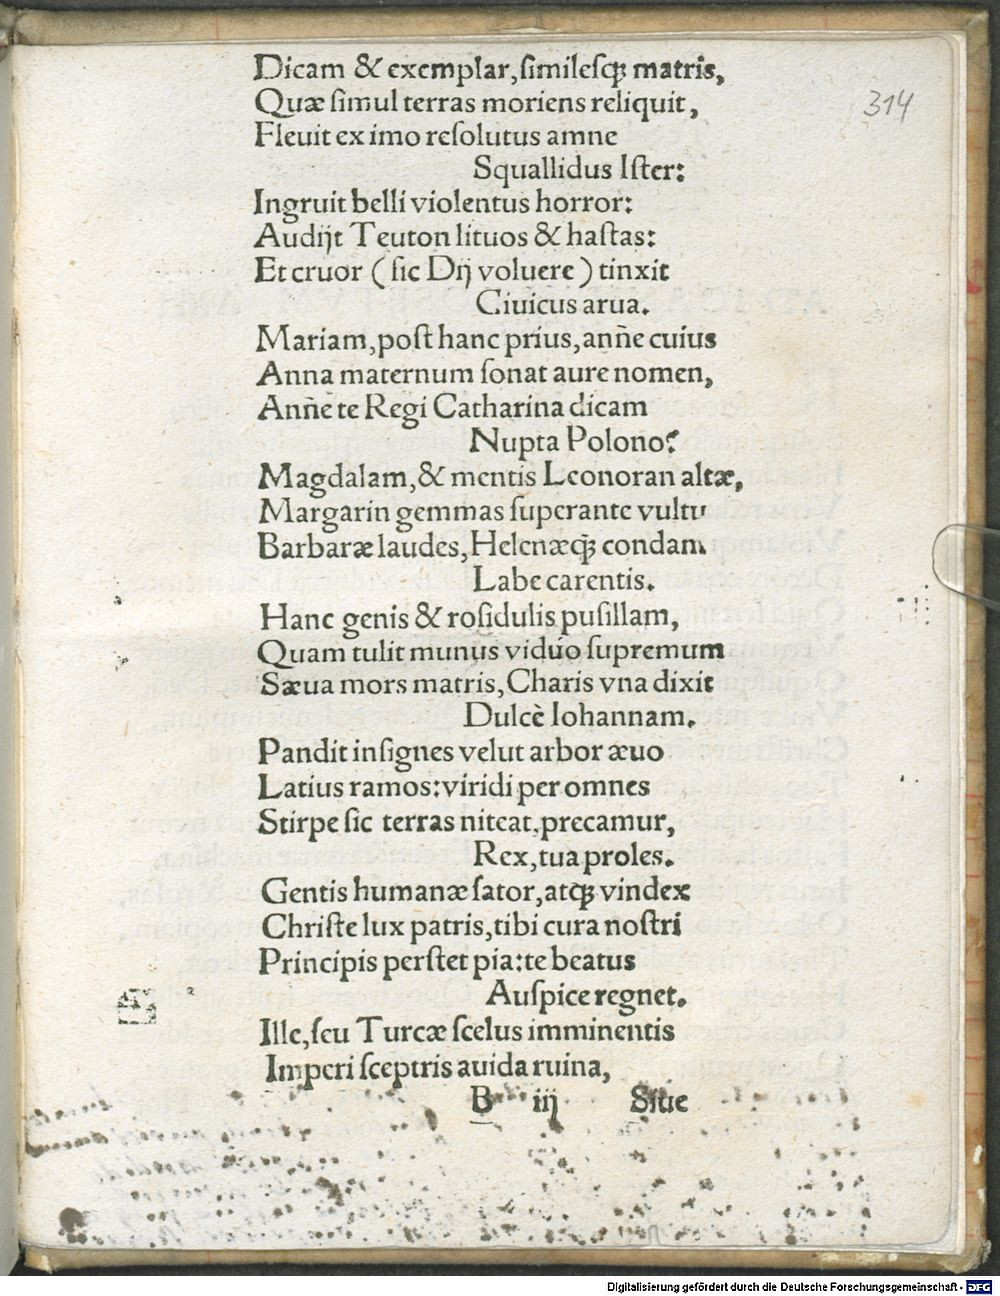 Dicam & exemplar, ſimileſqꝫ matris,
314
Quæ ſimul terras moriens reliquit,
Fleuit ex imo reſolutus amne
Squallidus Iſter:
Ingruit belli violentus horror:
Audijt Teuton lituos & haſtas:
Et cruor (ſic Dij voluere) tinxit
Ciuicus arua.
Mariam, poſt hanc prius, anñe cuius
Anna maternum ſonat aure nomen,
Anñe te Regi Catharina dicam
Nupta Polono?
Magdalam, & mentis Leonoran altæ,
Margarin gemmas ſuperante vultu
Barbaræ laudes, Helenæq̃ꝫ condam
Labe carentis.
Hanc genis & roſidulis puſillam,
Quam tulit munus viduo ſupremum
Sæua mors matris, Charis vna dixit
Dulcè Iohannam.
Pandit inſignes velut arbor æuo
Latius ramos: viridi per omnes
Stirpe ſic terras niteat, precamur,
Rex, tua proles.
Gentis humanæ ſator, atq̃ꝫ vindex
Chriſte lux patris, tibi cura noſtri
Principis perſtet pia: te beatus
Auſpice regnet.
Ille, ſeu Turcæ ſcelus imminentis
Imperi ſceptris auida ruina,
B iij Siue
Digitalisierung gefördert durch die Deutsche Forschungsgemeinschaft - DFG